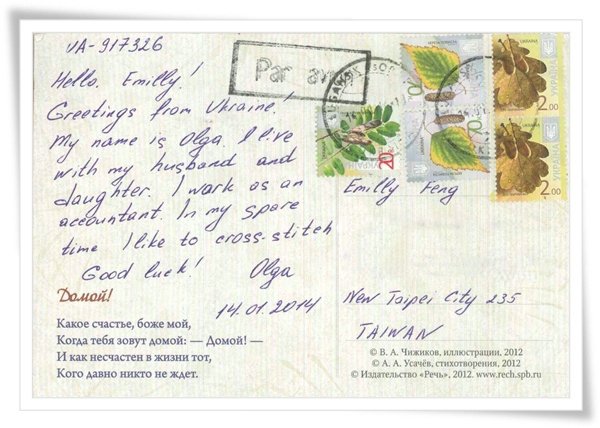 UA-917326
Hello, Emilly!
Greetings from Ukraine!
My name is Olga. I live
with my husband and
daughter. I work as an
accountant. In my spare
time I like to cross-stitch
Good luck! Olga
14.01.2014
Par avion
УКРАЇНА
2.00
УКРАЇНА
2.00
20
Emilly Feng
New Taipei City 235
TAIWAN
Домой!
Какое счастье, боже мой,
Когда тебя зовут домой: — Домой! —
И как несчастен в жизни тот,
Кого давно никто не ждет.
© В. А. Чижиков, иллюстрации, 2012
© А. А. Усачёв, стихотворения, 2012
© Издательство «Речь», 2012. www.rech.spb.ru